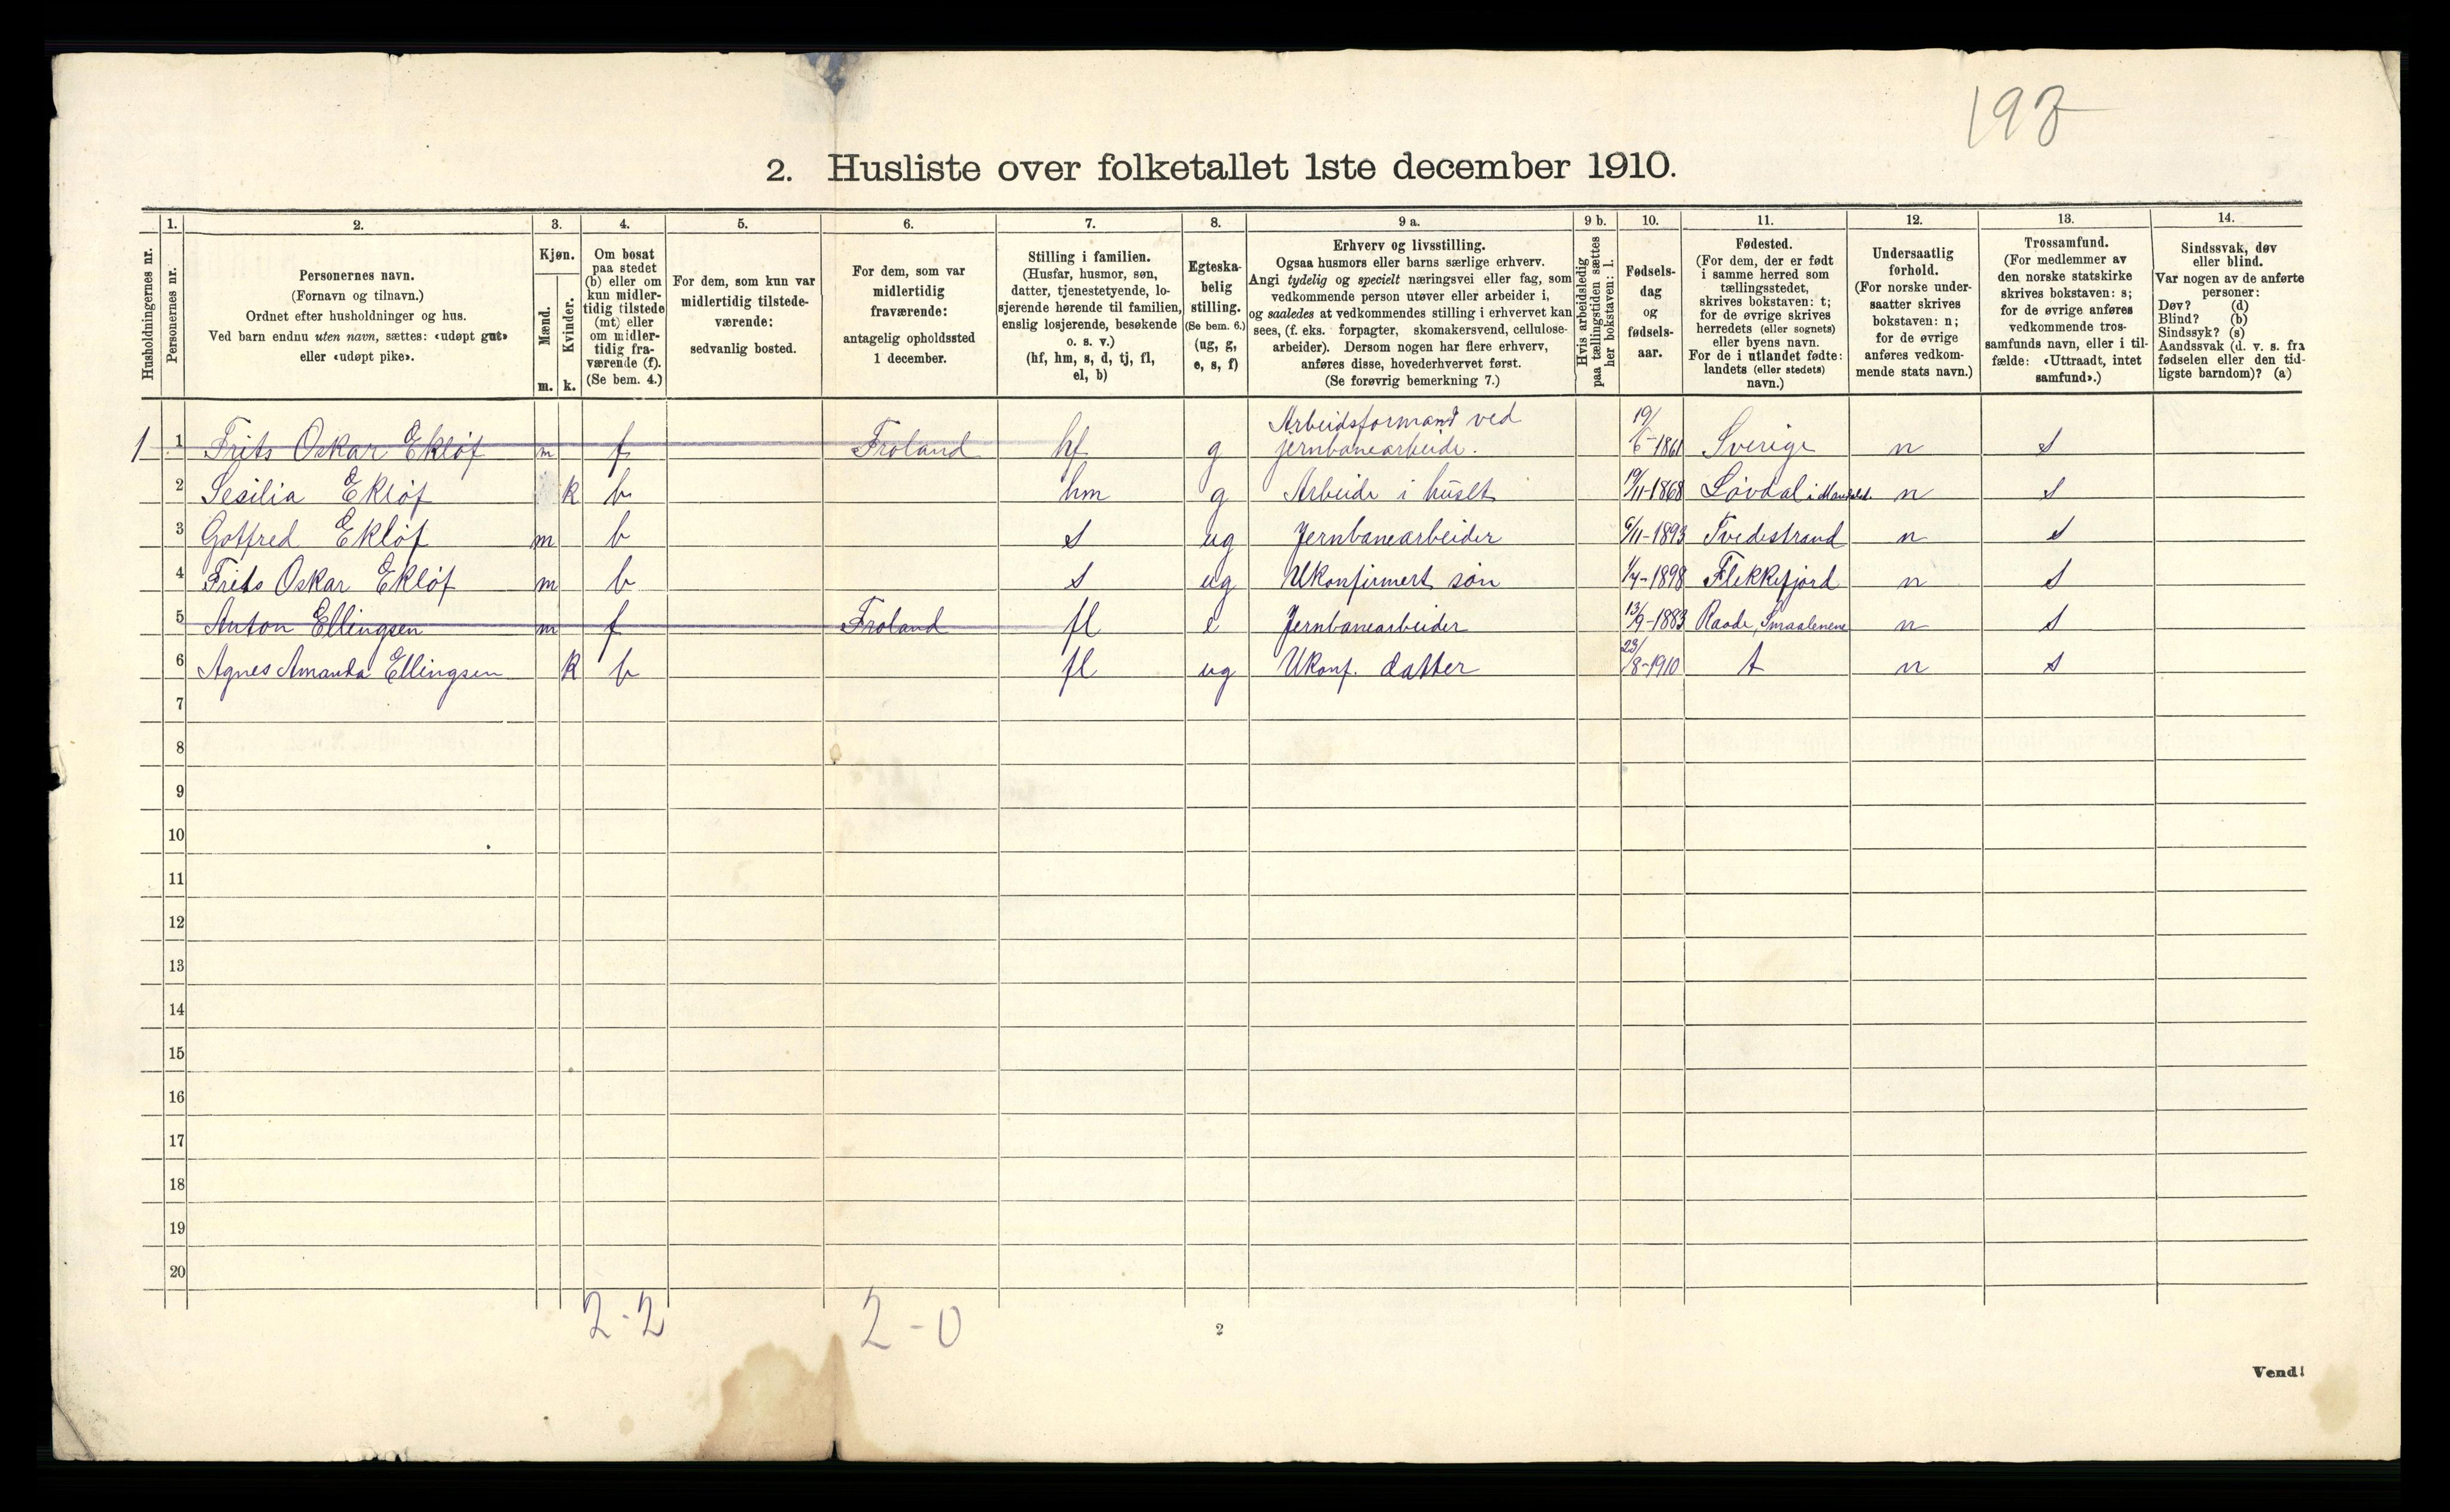 198
2. Husliste over folketallet 1ste december 1910.
Husholdningernes nr.
1.
Personernes nr.
2.
Personernes navn.
(Fornavn og tilnavn.)
Ordnet efter husholdninger og hus.
Ved barn endnu uten navn, sættes: «udøpt gut»
eller «udøpt pike».
3.
Kjøn.
Mænd.
m.
Kvinder.
k.
4.
Om bosat
paa stedet
(b) eller om
kun midler-
tidig tilstede
(mt) eller
om midler-
tidig fra-
værende (f).
(Se bem. 4.)
5.
For dem, som kun var
midlertidig tilstede-
værende:
sedvanlig bosted.
6.
For dem, som var
midlertidig
fraværende:
antagelig opholdssted
1 december.
7.
Stilling i familien.
(Husfar, husmor, søn,
datter, tjenestetyende, lo-
sjerende hørende til familien,
enslig losjerende, besøkende
o. s. v.)
(hf, hm, s, d, tj, fl,
el, b)
8.
Egteska-
belig
stilling.
(Se bem. 6.)
(ug, g,
e, s, f)
9 a.
Erhverv og livsstilling.
Ogsaa husmors eller barns særlige erhverv.
Angi tydelig og specielt næringsvei eller fag, som
vedkommende person utøver eller arbeider i,
og saaledes at vedkommendes stilling i erhvervet kan
sees, (f. eks. forpagter, skomakersvend, cellulose-
arbeider). Dersom nogen har flere erhverv,
anføres disse, hovederhvervet først.
(Se forøvrig bemerkning 7.)
9 b.
Hvis arbeidsledig
paa tællingstiden sættes
her bokstaven: l.
10.
Fødsels-
dag
og
fødsels-
aar.
11.
Fødested.
(For dem, der er født
i samme herred som
tællingsstedet,
skrives bokstaven: t;
for de øvrige skrives
herredets (eller sognets)
eller byens navn.
For de i utlandet fødte:
landets (eller stedets)
navn.)
12.
Undersaatlig
forhold.
(For norske under-
saatter skrives
bokstaven: n;
for de øvrige
anføres vedkom-
mende stats navn.)
13.
Trossamfund.
(For medlemmer av
den norske statskirke
skrives bokstaven: s;
for de øvrige anføres
vedkommende tros-
samfunds navn, eller i til-
fælde: «Uttraadt, intet
samfund».)
14.
Sindssvak, døv
eller blind.
Var nogen av de anførte
personer:
Døv? (d)
Blind? (b)
Sindssyk? (s)
Aandssvak (d. v. s. fra
fødselen eller den tid-
ligste barndom)? (a)
1 1 Frits Oskar Ekløf m f Froland hf g Arbeidsformand ved
jernbanearbeide. 19/6-1861 Sverige n s
2 Sesilia Ekløf k b hm g Arbeide i huset 19/11-1868 Løvdal i n s
3 Gotfred Ekløf m b s ug Jernbanearbeider 6/11-1893 Tvedestrand n s
4 Frits Oskar Ekløf m b s ug Ukonfirmert søn 1/4-1898 Flekkefjord n s
5 Anton Ellingsen m f Froland fl e Jernbanearbeider 13/9-1883 Raade, Smaalenene n s
6 Agnes Amanda Ellingsen k b fl ug Ukonf. datter 23/8-1910 t n s
7
8
9
10
11
12
13
14
15
16
17
18
19
20
2-2 2-0
2
Vend!